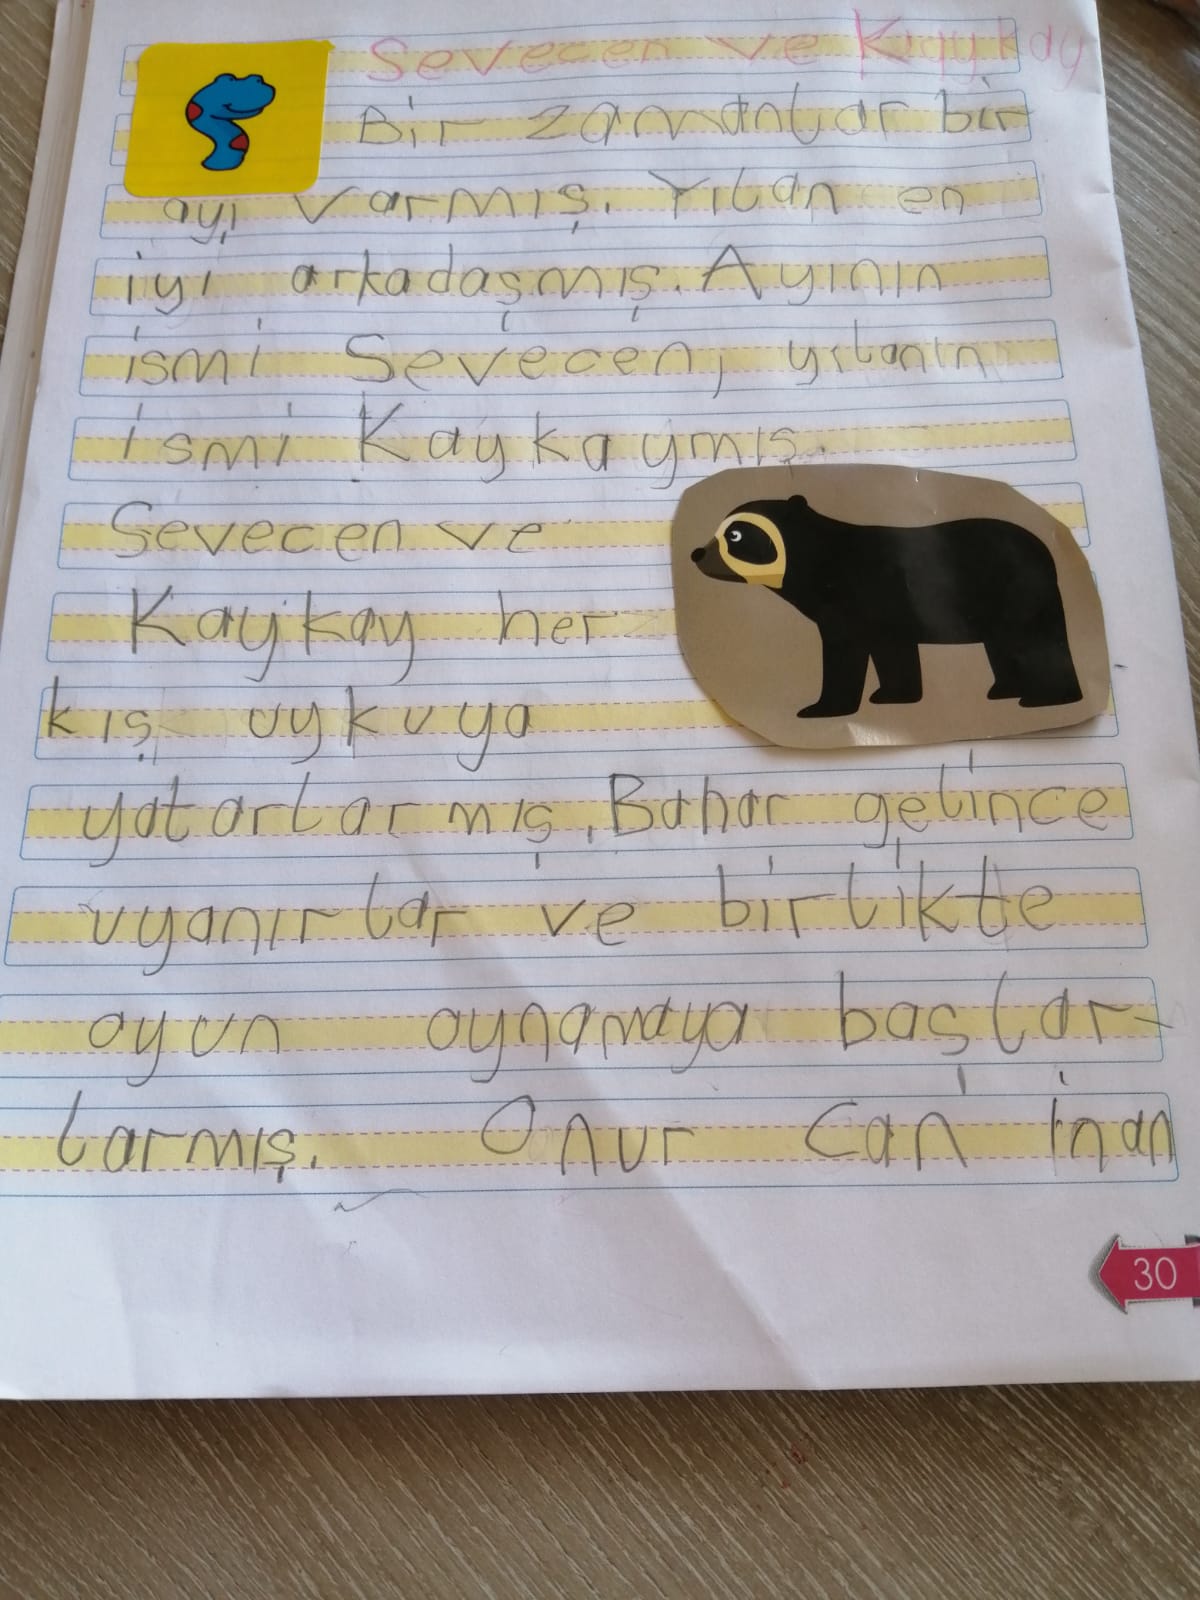 Sevecen ve Kaykay
Bir zamanlar bir
ayı varmış. Yılan en
iyi arkadaşmış. Ayının
ismi Sevecen, yılanın
ismi Kaykaymış.
Sevecen ve
Kaykay her
kış uykuya
yatarlarmış. Bahar gelince
uyanırlar ve birlikte
oyun oynamaya başlar-
larmış. Onur Can İnan
30